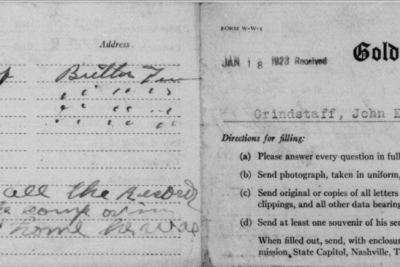 Address.
Butler Tenn
" " "
" " "
" " "
all the Record
home he was
FORM W-W-1
JAN 18 1923 Received
Gold
Grindstaff, John E
Directions for filling:
(a) Please answer every question in full
(b) Send photograph, taken in uniform,
(c) Send original or copies of all letters
clippings, and all other data bearing
(d) Send at least one souvenir of his se
When filled out, send, with enclosu
mission, State Capitol, Nashville, T